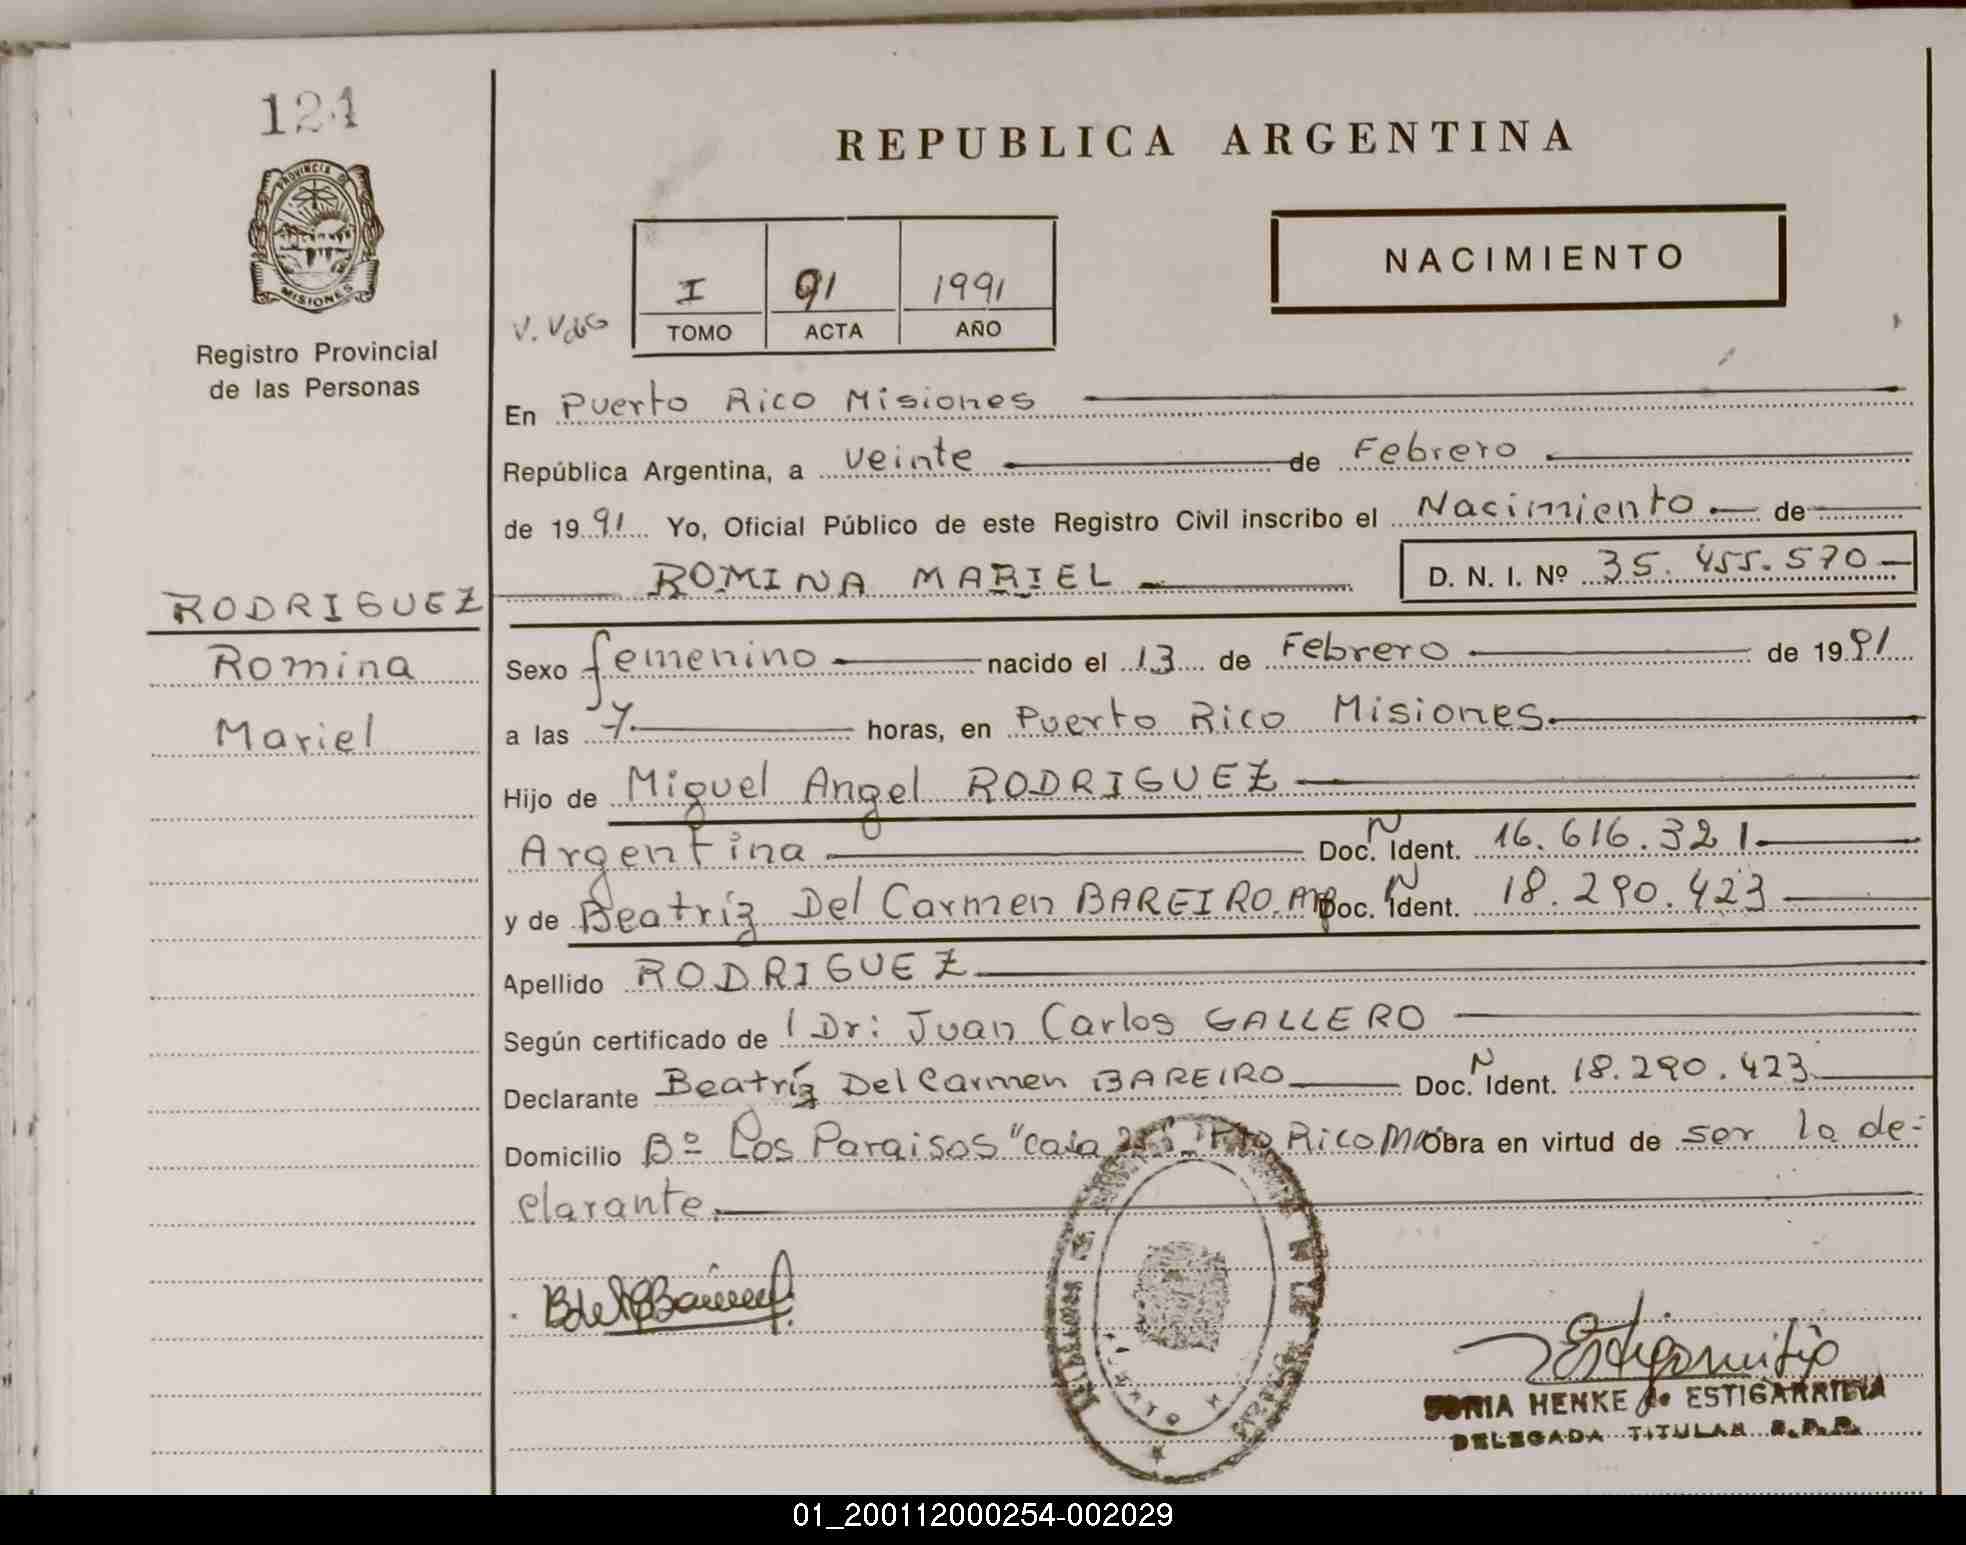 124
PROVINCIA DE
MISIONES
Registro Provincial
de las Personas
RODRIGUEZ
Romina
Mariel
REPUBLICA ARGENTINA
NACIMIENTO
I 91 1991
TOMO ACTA AÑO
En Puerto Rico Misiones
República Argentina, a veinte de Febrero
de 1991 Yo, Oficial Público de este Registro Civil inscribo el Nacimiento de
ROMINA MARIEL D. N. I. Nº 35.455.570
Sexo femenino nacido el 13 de Febrero de 1991
a las 7 horas, en Puerto Rico Misiones
Hijo de Miguel Angel RODRIGUEZ
Argentina Doc. N Ident. 16.616.321
y de Beatríz Del Carmen BAREIRO. Arg Doc. N Ident. 18.290.423
Apellido RODRIGUEZ
Según certificado de l Dr: Juan Carlos GALLERO
Declarante Beatríz Del Carmen BAREIRO Doc. N Ident. 18.290.423
Domicilio Bº Los Paraisos "casa Pto Rico Obra en virtud de ser la de-
clarante.
SONIA HENKE de ESTIGARRIBIA
DELEGADA TITULAR R.P.P.
01_200112000254-002029